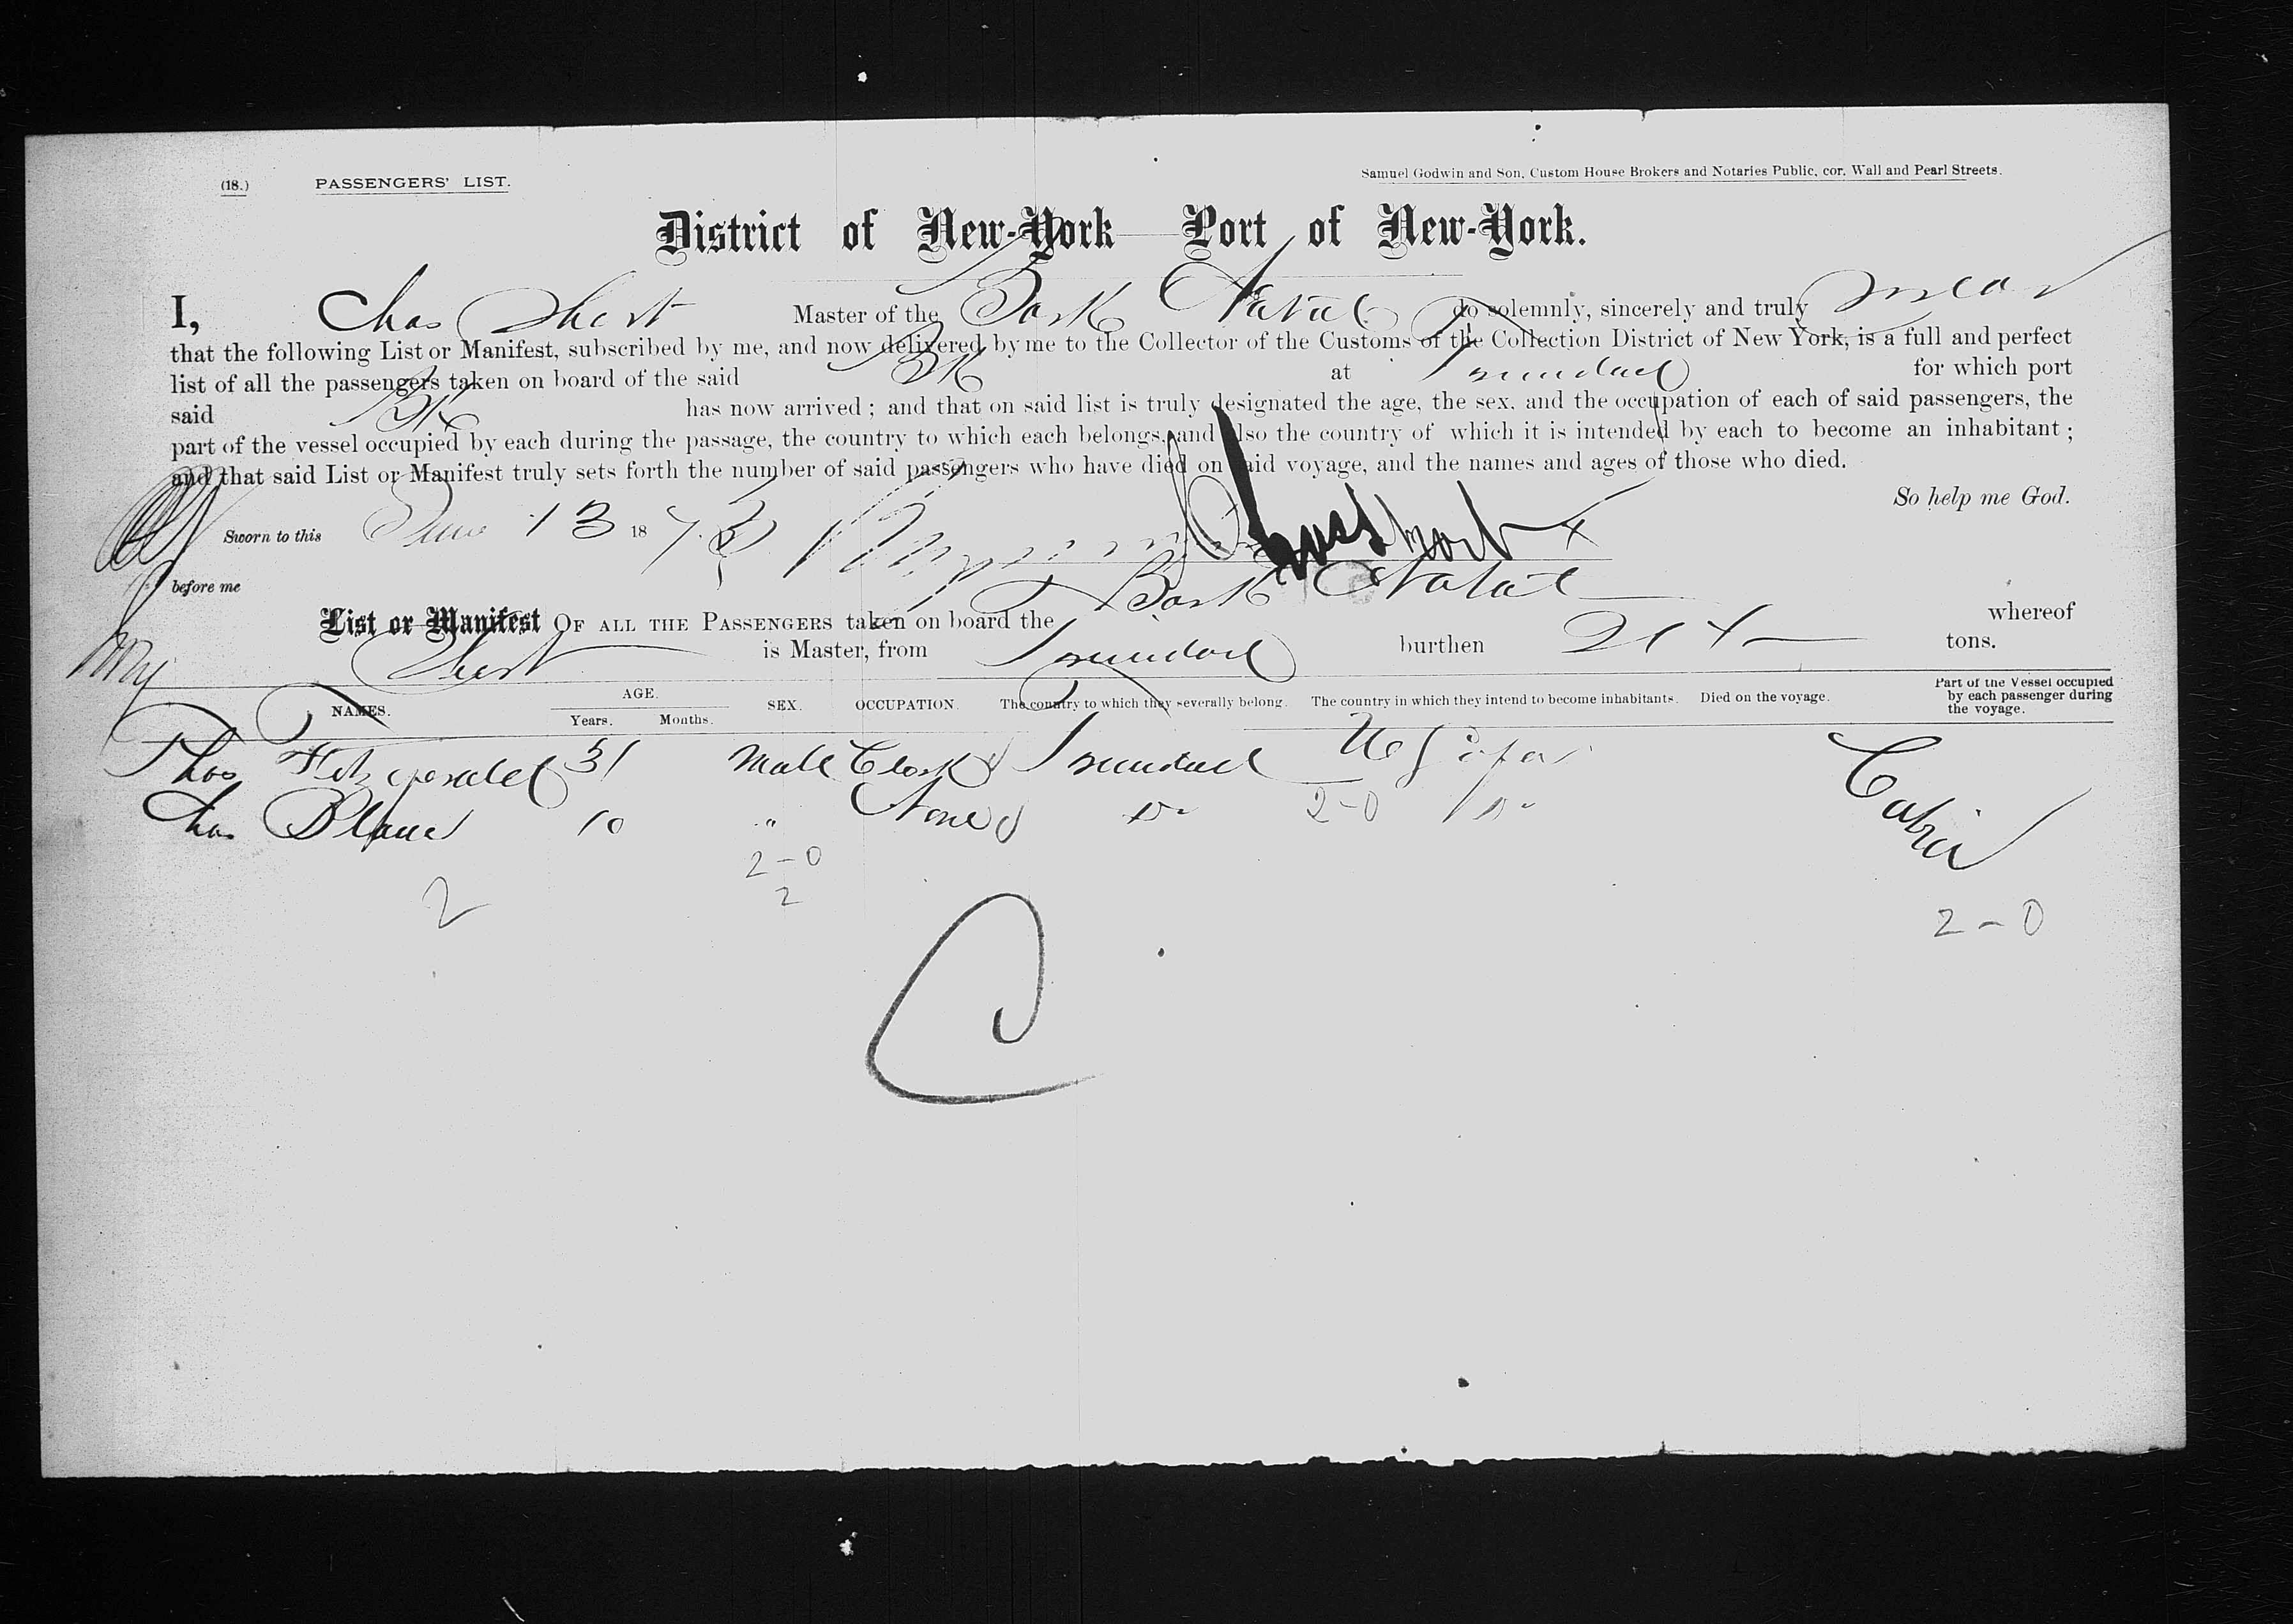 (18.) PASSENGERS' LIST. Samuel Godwin and Son, Custom House Brokers and Notaries Public, cor. Wall and Pearl Streets.
District of New-York—Port of New-York.
I, Chas Short Master of the Bark Natal do solemnly, sincerely and truly swear
that the following List or Manifest, subscribed by me, and now delivered by me to the Collector of the Customs of the Collection District of New York, is a full and perfect
list of all the passengers taken on board of the said Bk at Trinidad for which port
said Bk has now arrived; and that on said list is truly designated the age, the sex, and the occupation of each of said passengers, the
part of the vessel occupied by each during the passage, the country to which each belongs, and also the country of which it is intended by each to become an inhabitant;
and that said List or Manifest truly sets forth the number of said passengers who have died on said voyage, and the names and ages of those who died.
So help me God.
Sworn to this June 13 187 Chas Short
before me
List or Manifest OF ALL THE PASSENGERS taken on board the Bark Natal whereof
Short is Master, from Trinidad burthen tons.
NAMES. AGE. Years. Months. SEX. OCCUPATION. The country to which they severally belong. The country in which they intend to become inhabitants. Died on the voyage. Part of the Vessel occupied by each passenger during the voyage.
Thos Fitzgerald 31 Male Clerk Trinidad Cabin
Chas 10 " None Do 2-0 Do
2-0
2 2
2-0
C